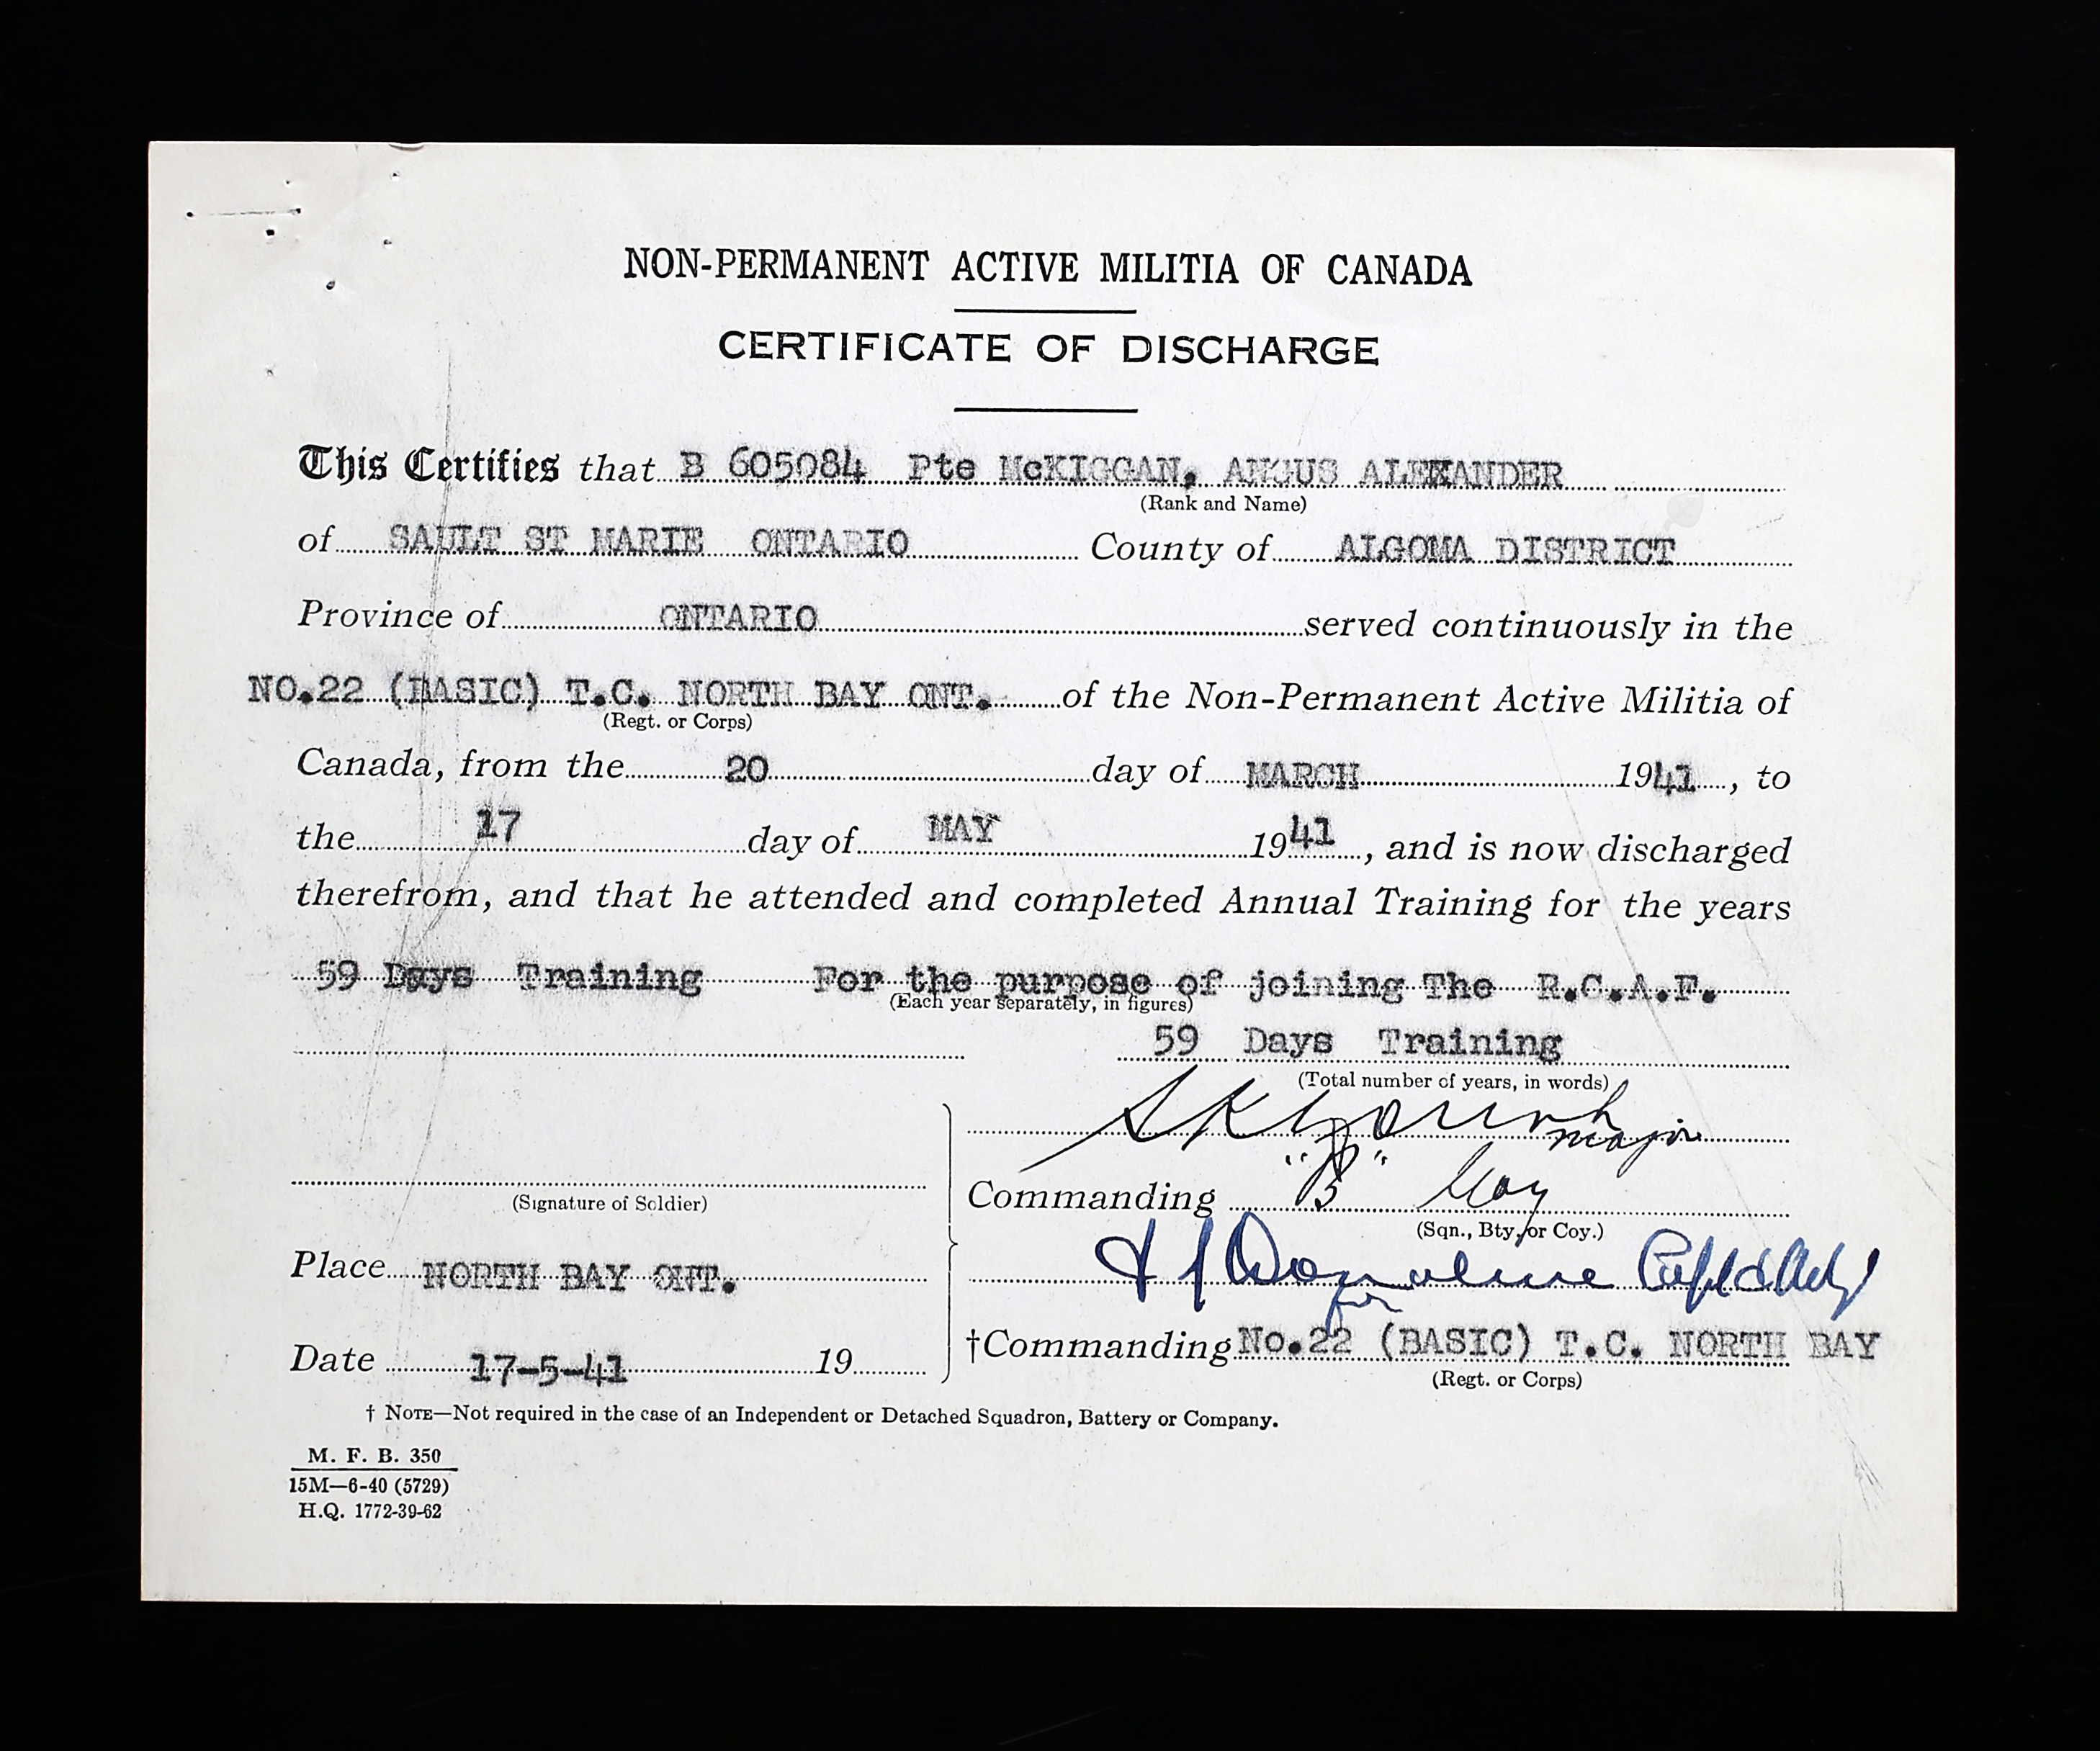 NON-PERMANENT ACTIVE MILITIA OF CANADA
CERTIFICATE OF DISCHARGE
This Certifies that B 605084 Pte McKIGGAN, ANGUS ALEXANDER
(Rank and Name)
of SAULT ST MARIE ONTARIO County of ALGOMA DISTRICT
Province of ONTARIO served continuously in the
NO.22 (BASIC) T.C. NORTH BAY ONT. of the Non-Permanent Active Militia of
(Regt. or Corps)
Canada, from the 20 day of MARCH 1941, to
the 17 day of MAY 1941, and is now discharged
therefrom, and that he attended and completed Annual Training for the years
59 Days Training For the purpose of joining The R.C.A.F.
(Each year separately, in figures)
59 Days Training
(Total number of years, in words)
major
(Signature of Soldier)
Commanding "B" Coy
(Sqn., Bty, or Coy.)
Place NORTH BAY ONT.
for
†Commanding No.22 (BASIC) T.C. NORTH BAY
(Regt. or Corps)
Date 17-5-41 19
† NOTE—Not required in the case of an Independent or Detached Squadron, Battery or Company.
M. F. B. 350
15M—6-40 (5729)
H.Q. 1772-39-62